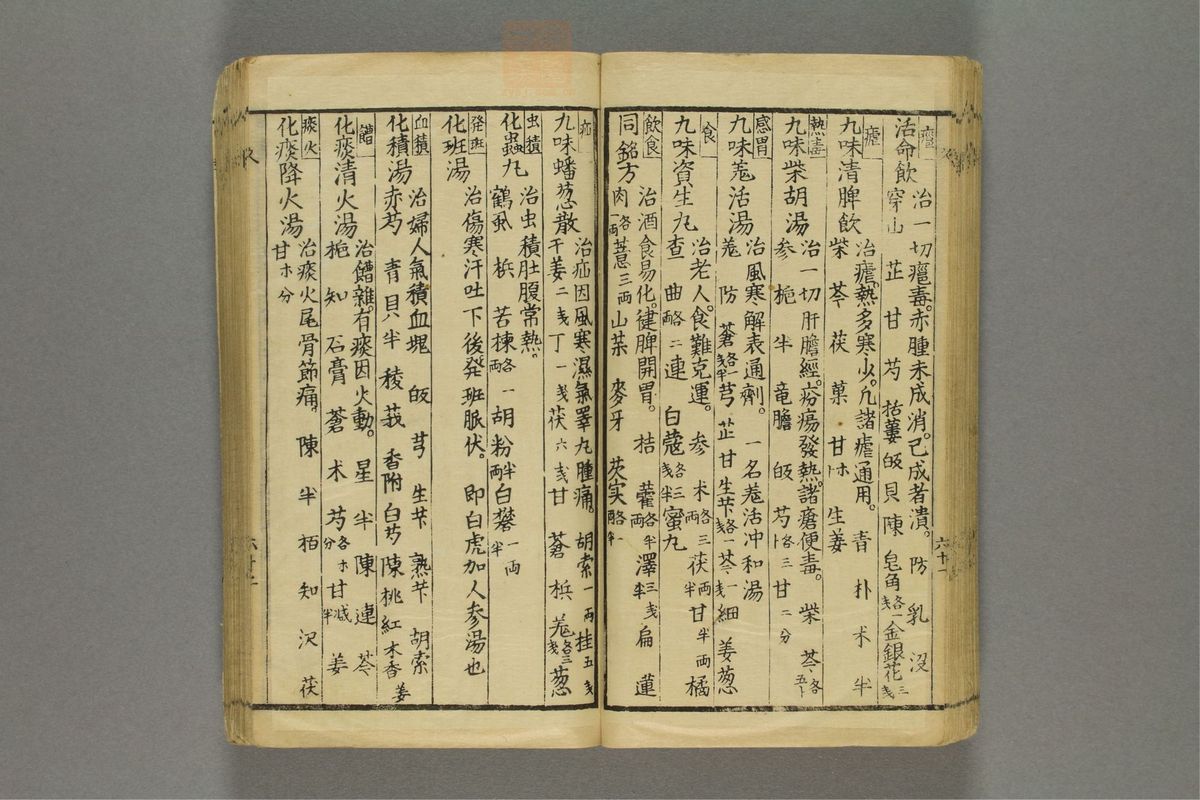 癰
活命飲
治一切癰毒。赤腫未成消。已成者潰。防 乳 没
穿山 芷 甘 芍 括蔞 皈 貝 陳 皂角各一戋 金銀花三戋
瘧
九味清脾飲
治瘧。熱多寒少。凢諸瘧通用。青 朴 术 半
柴 芩 茯 菓 甘 生姜
熱毒
九味柴胡湯
治一切肝膽經。瘡瘍發熱。諸瘡便毒。柴 芩各五卜
参 梔 半 竜膽 皈 芍各三卜 甘二分
感冒
九味羗活湯
治風寒解表通劑。一名羗活冲和湯
羗 防 蒼各一戋半 芎 芷 甘 生芐各一戋 芩一戋 細 姜葱
食
九味資生丸
治老人。食難克運。参 术各三両 茯両半 甘半両 橘
查 曲各二両 連 白蔻各三戋半 蜜丸
飲食
同銘方
治酒食易化。健脾開胃。桔 藿各半両 澤三戋半 扁 蓮
肉各一両 薏三両 山茱 麥牙 芡实各一両半
疝
九味蟠葱散
治疝因風寒濕氣睪丸腫痛。胡索一両 桂五戋
干姜二戋 丁一戋 茯六戋 甘 蒼 梹 羗各三戋 葱
虫積
化蟲丸
治虫積肚腹常熱。
鶴虱 梹 苦楝各一両 胡粉半両 白礬一両半
発班
化班湯
治傷寒汗吐下後発班脈伏。即白虎加人参湯也
血積
化積湯
治婦人氣積血塊 皈 芎 生芐 熟芐 胡索
赤芍 青 貝半 稜 莪 香附 白芍 陳 桃 紅 木香 姜
饐
化痰清火湯
治饐雜。有痰因火動。星 半 陳 連 芩
梔 知 石膏 蒼 术 芍各分 甘减半 姜
痰火
化痰降火湯
治痰火尾骨節痛。陳 半 栢 知 沢 茯
甘 分
六十一